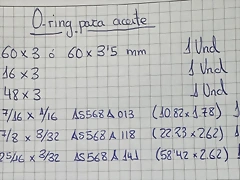 O-ring para aceite
60 x 3 ó 60 x 3'5 mm 1 Und
16 x 3 1 Und
48 x 3 1 Und
7/16 x 1/16 AS568A 013 (10.82 x 1.78) 1
7/8 x 3/32 AS568A 118 (22'23 x 2.62) 1
5/16 x 3/32 AS568A 141 (58'42 x 2.62) 1